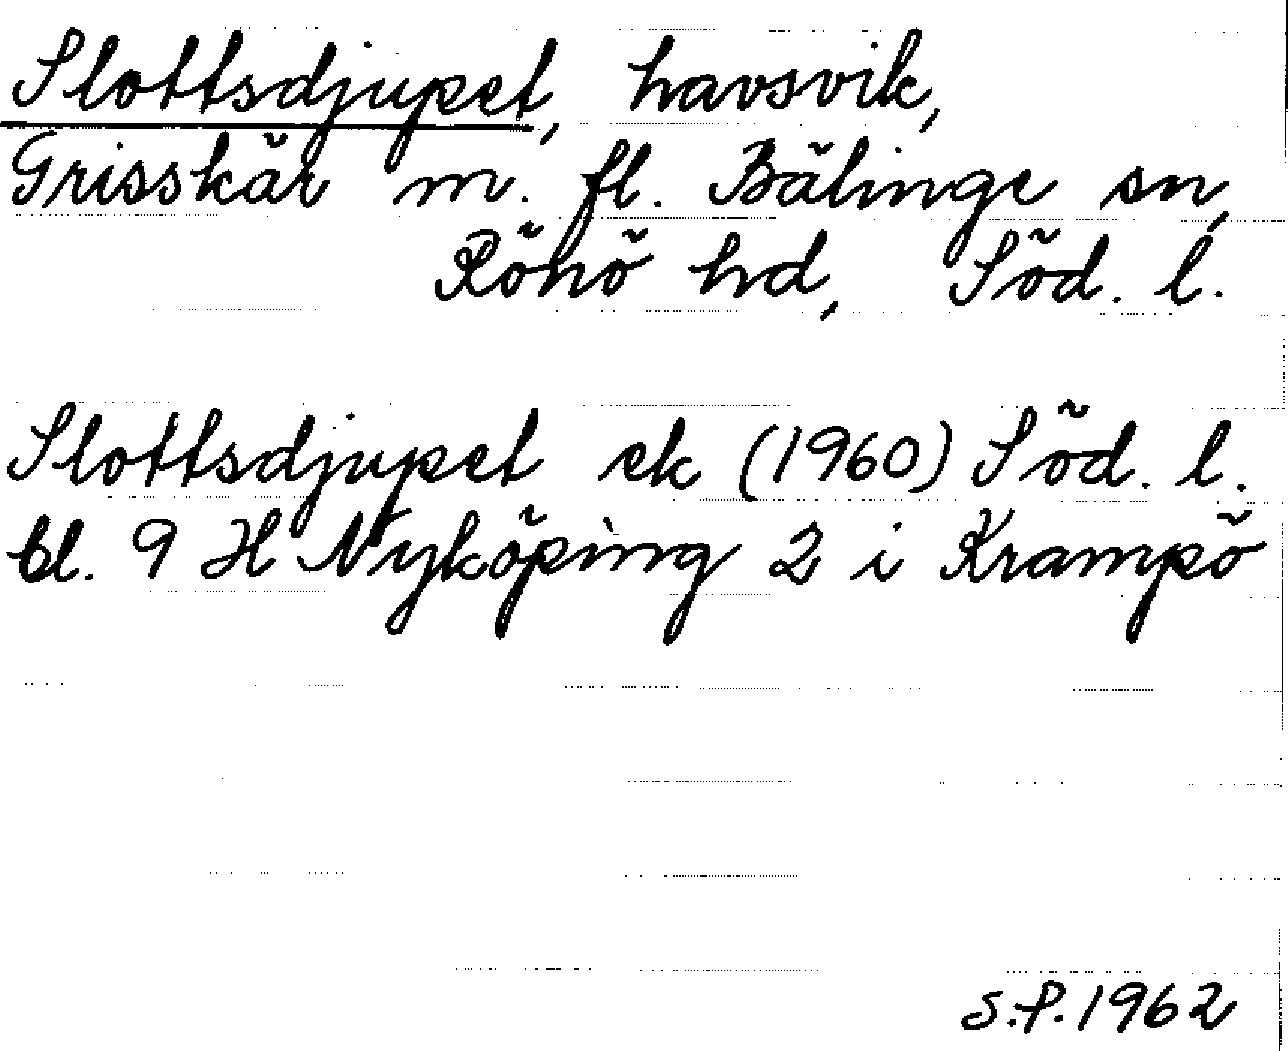 Slottsdjupet, havsvik,
Grisskär m. fl. Bälinge sn,
Rönö hd, Söd. l.
Slottsdjupet ek (1960) Söd. l.
bl. 9 H Nyköping 2 i Krampö
S.P. 1962